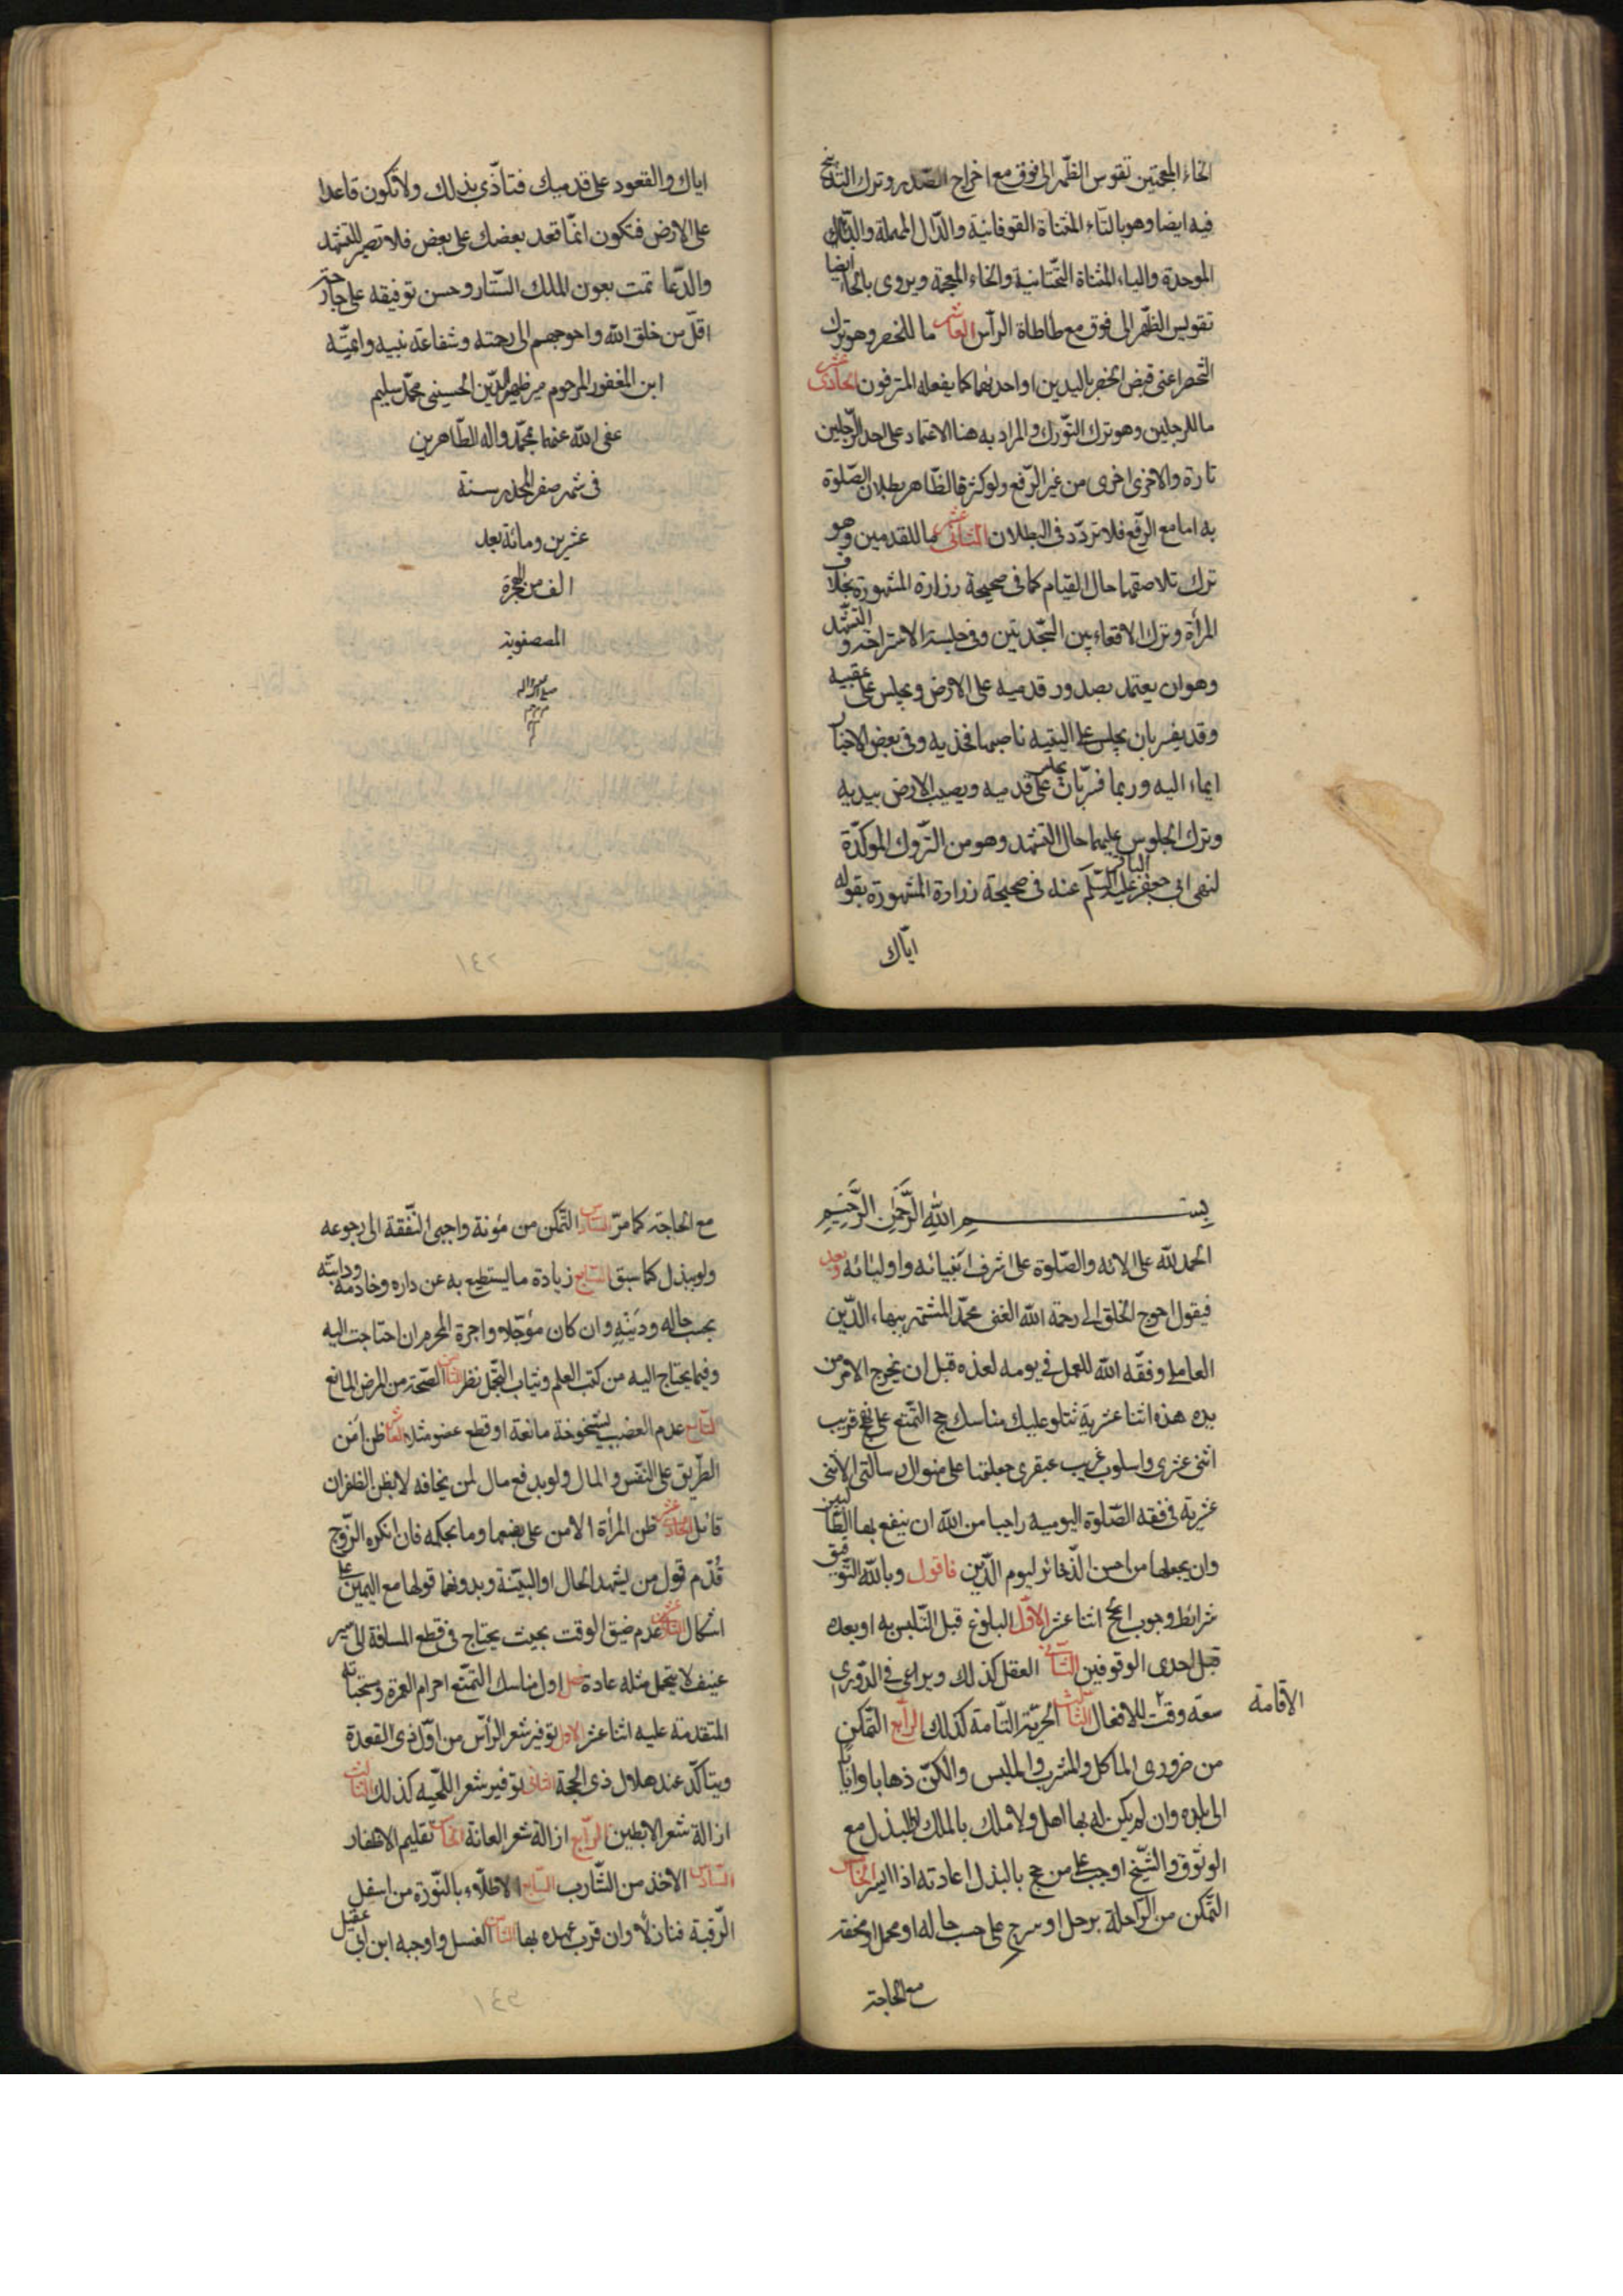 الخاء المعجمتين تقوس الظهر الى فوق مع اخراج الصدر وترك التدبيخ
فيه ايضا وهو بالتاء المثناة الفوقانية والدال المهملة والباء
الموحدة والياء المثناة التحتانية والخاء المعجمة ويروى بالحاء ايضا
تقويس الظهر الى فوق مع طاطاة الرأس العاشر ما للخصر وهو ترك
التخصر اعنى قبض الخصر باليدين او احديهما كما يفعله المترفون الحادى عشر
ما للرجلين وهو ترك التورك والمراد به هنا الاعتماد على احد الرجلين
تارة والاخرى اخرى من غير الرفع ولو كثر فالظاهر بطلان الصلوة
به اما مع الرفع فلا تردد فى البطلان الثانى عشر ما للقدمين وهو
ترك تلاصقهما حال القيام كما فى صحيحة زرارة المشهورة بخلاف
المرأة وترك الاقعاء بين السجدتين وفى جلسة الاستراحة والتشهد
وهو ان يعتمد بصدور قدميه على الارض ويجلس على عقبيه
وقد يفسر بان يجلس على اليتيه ناصبا فخذيه وفى بعض الاخبار
ايماء اليه وربما فسر بان يجلس على قدميه ويصيب الارض بيديه
وترك الجلوس عليهما حال التشهد وهو من التروك الموكدة
لنهى ابى جعفر الباقر عليه السلم عنه فى صحيحة زرارة المشهورة بقوله
اياك
اياك والقعود على قدميك فتأذى بذلك ولا تكون قاعدا
على الارض فتكون انما قعد بعضك على بعض فلا تصبر للتشهد
والدعا تمت بعون الملك الستار وحسن توفيقه على يد
اقل من خلق الله واحوجهم الى رحمته وشفاعة نبيه وائمته
ابن المغفور المرحوم مير ظهير الدين الحسينى محمد سليم
عفى الله عنهما بمحمد واله الطاهرين
فى شهر صفر سنة
عشرين ومائة بعد
الف من الهجرة
المصطفوية
بسم الله الرحمن الرحيم
الحمد لله على الائه والصلوة على اشرف انبيائه واوليائه وبعد
فيقول احوج الخلق الى رحمة الله الغنى محمد المشتهر ببهاء الدين
العاملى وفقه الله للعمل فى يومه لغده قبل ان يخرج الامر من
يده هذه اثنا عشرية تتلو عليك مناسك حج التمتع على نهج قريب
اثنى عشرى واسلوب غريب عبقرى جعلتها على منوال رسالتى الاثنى
عشرية فى فقه الصلوة اليومية راجيا من الله ان ينفع بها الطالبين
وان يجعلها من احسن الذخائر ليوم الدين فاقول وبالله التوفيق
شرائط وجوب الحج اثنا عشر الاول البلوغ قبل التلبس به او بعده
قبل احدى الوقوفين الثانى العقل كذلك ويراعى فى الدورى
سعة وقت للافعال الثالث الحرية التامة كذلك الرابع التمكن
الاقامة
من ضرورى الماكل والمشرب والملبس والكن ذهابا وايابا
الى بلده وان لم يكن له بها اهل ولا ملك بالملك او البذل مع
الوثوق والشيخ اوجب على من حج بالبذل اعادته اذا ايسر الخامس
التمكن من الراحلة برحل او سرج على حسب حاله او محمل او محفة
مع الحاجة
مع الحاجة كما مر السادس التمكن من مؤنة واجبى النفقة الى رجوعه
ولو ببذل كما سبق السابع زيادة ما يستطيع به عن داره وخادمه ودابته
بحسب حاله ودينه وان كان مؤجلا واجرة المحرم ان احتاجت اليه
وفيما يحتاج اليه من كتب العلم وثياب التجمل نظر الثامن الصحة من المرض المانع
التاسع عدم العضب بشيخوخة مانعة او قطع عضو مثلا العاشر ظن امن
الطريق على النفس والمال ولو بدفع مال لمن يخافه لا بظن الظفر ان
قاتل الحادى عشر ظن المرأة الامن على بضعها وما بحكمه فان انكره الزوج
قدم قول من يشهد الحال او البينة وبدونهما قولها مع اليمين على
اشكال الثانى عشر عدم ضيق الوقت بحيث يحتاج فى قطع المسافة الى سير
عنيف لا يتحمل مثله عادة فصل اول مناسك التمتع احرام العمرة ومستحباته
المتقدمة عليه اثنا عشر الاول توفير شعر الرأس من اول ذى القعدة
ويتاكد عند هلال ذى الحجة الثانى توفير شعر اللحية كذلك الثالث
ازالة شعر الابطين الرابع ازالة شعر العانة الخامس تقليم الاظفار
السادس الاخذ من الشارب السابع الاطلاء بالنورة من اسفل
الرقبة فنازلا وان قرب عهده بها الثامن الغسل واوجبه ابن ابى عقيل